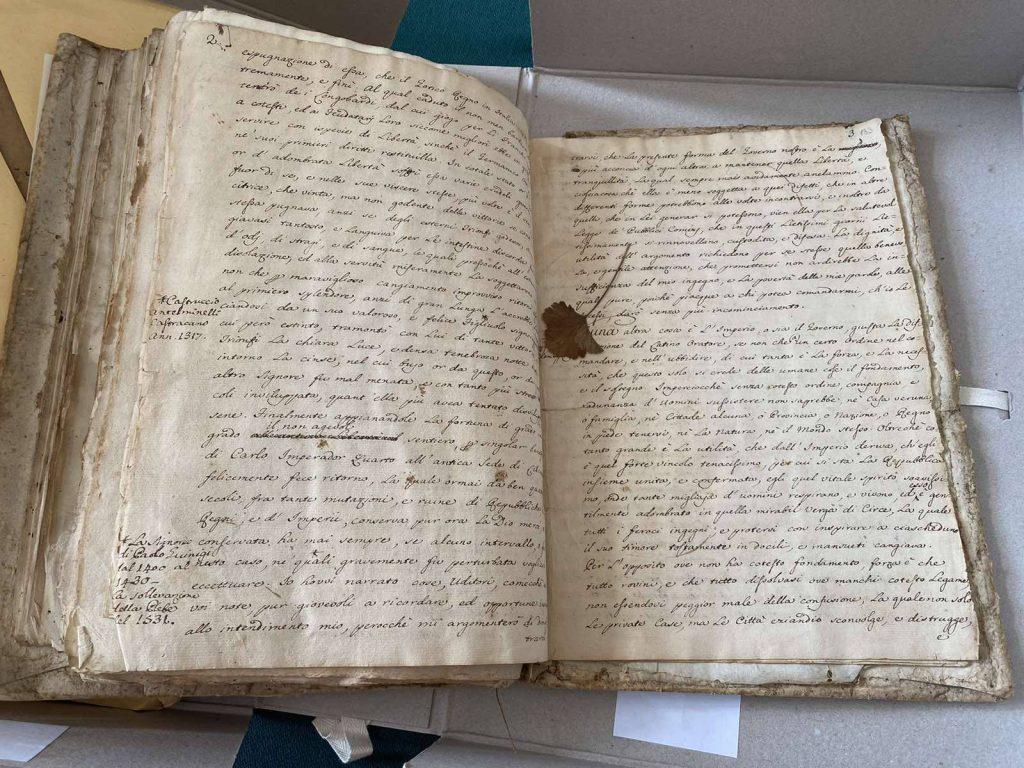 2.
espugnazione di essa, che il Gotico Regno in Italia
tremamente, e finì. Al qual caduto il non men
tentrò de i Longobardi, dal cui giogo per
a cotesti, ed ai Feudatarj Loro siccome migliori
servire con ispecie di Libertà sinchè il Germanico
ne' suoi primieri diritti restituilla. In cotale stato
or d'adombrata Libertà soffrì essa varie crudeli
fuor di se, e nelle sue viscere stesse, più volte
citrice, che vinta, ma non godente della vittoria se
stessa pugnava, anzi se degli esterni Trionfi
giavasi tantosto, e Languiva per Le intestine discordie
d'odj, di straj, e di sangue, le quali
dissolazione, ed alla servitù miseramente La soggettarono
non che per maraviglioso cangiamento improvviso
al primiero splendore, anzi di gran Lunga L'accrebbe
ciandovi da un suo valoroso, e felice Figliuolo
cui però estinto, tramontò con Lui di tante vittorie
Trionfi La chiara Luce, e densa tenebrosa notte
intorno La cinse, nel cui bujo or da questo, or da
altro Signore fu mal menata, e con tanto più
coli inviluppata, quant'ella più avea tentato
sene. Finalmente appianandole La fortuna di grado
il non agevol
grado sentiero, per singolar
di Carlo Imperador Quarto all'antica Sede di
felicemente fece ritorno, La quale ormai da ben quattro
secoli, fra tante mutazioni, e ruine di Repubbliche
Regni, e d'Imperii, conserva pur ora La Dio mercè
conservata ha mai sempre, se alcuno intervallo
al nesto caso, ne' quali gravemente fu perturbata
eccettuare. Io hovvi narrato cose, Uditori, comechè
voi note, pur giovevoli a ricordare, ed opportune
allo intendimento mio, perocchè mi argomenterò di
trarvi
*Castruccio
Antelminelli
Castracano
Ann. 1317.
*La Signoria
di Paolo Guinigi
dal 1400 al
1430 —
La sollevazione
della Plebe
del 1531.
3 133
trarvi che La presente forma del Governo nostro è La
più acconcia d'ogni altra a mantener quella Libertà, e
tranquillità La qual sempre mai avidamente aneliamo. Con
ciosiacosachè ella è meno soggetta a quei difetti, che in altre
differenti forme potrebbono alle volte incontrarsi, e inoltre da
quello che in Lei generar si potessono, vien ella per La salutevol
Legge de' Pubblici Comizj, che in questi Lietissimi giorni Lie-
tissimamente si rinnovellano, custodita, e difesa. La dignità, e
utilità dell'argomento richiedono per se stesse quella benevo-
la, e gentile attenzione, che promettersi non ardirebbe La in-
sufficienza del mio ingegno, e La povertà delle mie parole, alle
quali pure, poichè piacque a chi potea comandarmi, ch'io Le
darò senza più incominciamento.
Una altra cosa è L'Imperio, o sia il Governo, giusta La Difi-
nizione del Latino Oratore, se non che un certo ordine nel co-
mandare, e nell'ubbidire, di cui tanta è La forza, e La neces-
sità, che questo solo si crede delle umane cose il fondamento,
e il sostegno. Imperciocchè senza cotesto ordine, compagnia e
radunanza d'Uomini sussistere non saprebbe, nè Casa veruna,
o famiglia, nè Cittade alcuna, o Provincia, o Nazione, o Regno
in piede tenersi, nè La natura, nè il Mondo stesso. Oltrechè co-
tanto grande è La utilità, che dall'Imperio deriva, ch'egli
è quel forte vincolo tenacissimo, per cui si sta La Repubblica
insieme unita, e confermata, egli quel vitale spirito soavissi-
esso
mo onde tante migliaja d'uomini respirano, e vivono ed è gen-
tilmente adombrato in quella mirabil Verga di Circe, La quale
tutti i feroci ingegni, e protervi con inspirare a ciascheduno
il suo timore tostamente in docili, e mansueti cangiava.
Per L'opposito ove non ha cotesto fondamento, forza è che
tutto rovini, e che tutto dissolvasi ove manchi cotesto Legame,
non essendovi peggior male della confusione, La quale non solo
Le private Case, ma Le Città eziandio sconvolge, e distrugge,
e